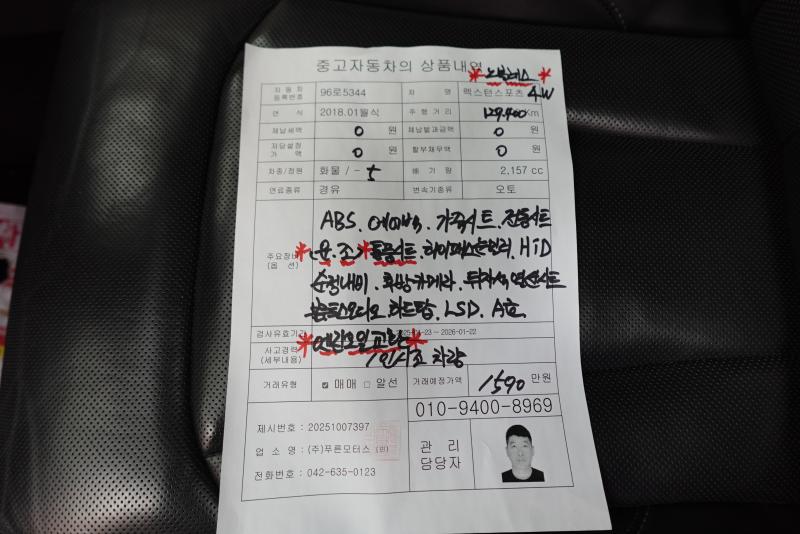 중고자동차의 상품내역
*노블레스*
자동차 등록번호 96로5344 차 명 렉스턴스포츠 4W
연 식 2018.01월식 주행거리 129,400Km
체납세액 0 원 체납범과금액 0 원
저당설정 가액 0 원 할부채무액 0 원
차종/정원 화물 / - 5 배 기 량 2,157 cc
연료종류 경유 변속기종류 오토
주요장비 (옵션)
ABS. 에어백. 가죽시트. 전동시트
*(운.조)통풍시트. 하이패스룸밀러. HiD
순정네비. 후방카메라. 뒷좌석 열선시트
블루투스오디오 하드탑. LSD. A급
검사유효기간 2025-01-23 ~ 2026-01-22
*엔진오일교환*
사고경력 (세부내용) 1인신조 차량
거래유형 ☑ 매매 □ 알선 거래예정가액 1590 만원
010-9400-8969
제시번호 : 20251007397
업 소 명 : (주)푸른모터스 (인)
전화번호 : 042-635-0123
관 리
담당자